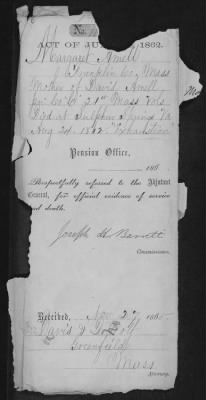 No.
ACT OF JULY 14, 1862.
Margaret Amell
Franklin Co. Mass
Mother of David Amell
Co. "G" 21st Mass Vols
Died at Sulphur Springs Va
Aug 24. 1862
Pension Office,
186
Respectfully referred to the Adjutant
General, for official evidence of service
and death.
Joseph H Barrett
Commissioner.
Received, Nov 27 1865
Davis &
Greenfield
Mass
Attorney.